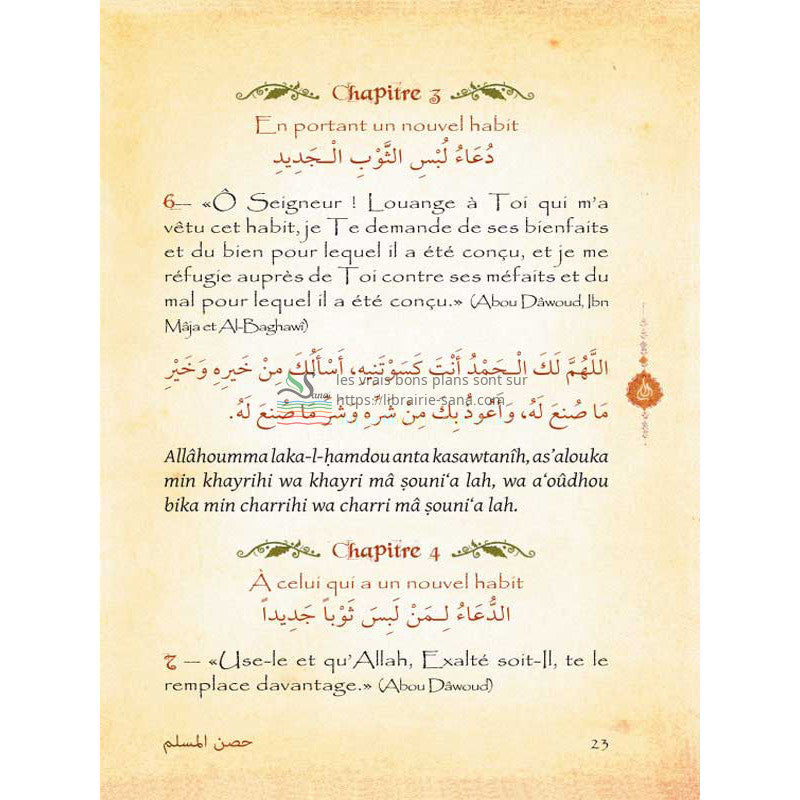 Chapitre 3
En portant un nouvel habit
دُعَاءُ لُبْسِ الثَّوْبِ الْـجَدِيدِ
6— «Ô Seigneur ! Louange à Toi qui m'a
vêtu cet habit, je Te demande de ses bienfaits
et du bien pour lequel il a été conçu, et je me
réfugie auprès de Toi contre ses méfaits et du
mal pour lequel il a été conçu.» (Abou Dâwoud, Ibn
Mâja et Al-Baghawî)
اللَّهُمَّ لَكَ الْـحَمْدُ أَنْتَ كَسَوْتَنِيهِ، أَسْأَلُكَ مِنْ خَيرِهِ وَخَيْرِ
مَا صُنعَ لَهُ، وَأَعوذُ بِكَ مِنْ شَرِّهِ وَشَرِّ مَا صُنعَ لَهُ.
Sana
les vrais bons plans sont sur
https://librairie-sana.com
Allâhoumma laka-l-ḥamdou anta kasawtanîh, as'alouka
min khayrihi wa khayri mâ ṣouni‘a lah, wa a‘oûdhou
bika min charrihi wa charri mâ ṣouni‘a lah.
Chapitre 4
À celui qui a un nouvel habit
الدُّعَاءُ لِـمَنْ لَبِسَ ثَوْباً جَدِيداً
7 — «Use-le et qu'Allah, Exalté soit-Il, te le
remplace davantage.» (Abou Dâwoud)
حصن المسلم
23